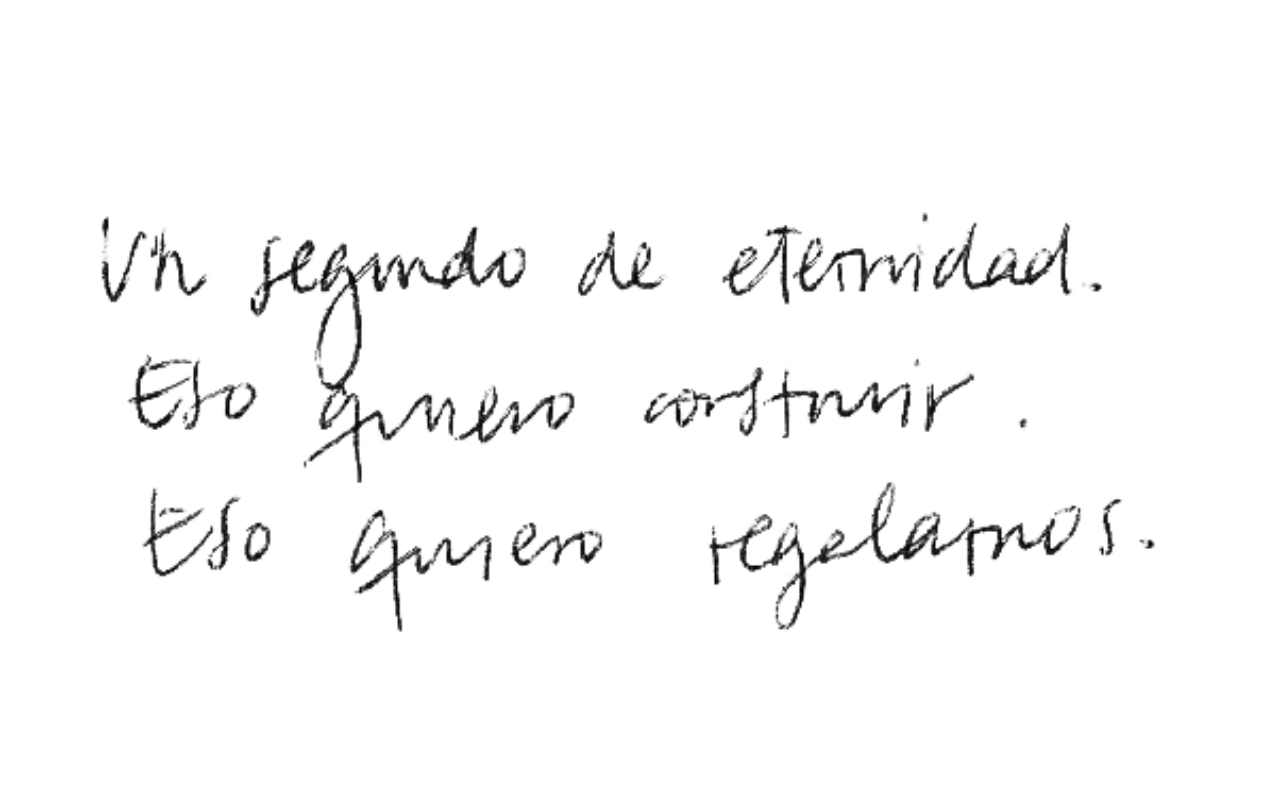 Un segundo de eternidad.
Eso quiero construir.
Eso quiero regalarnos.